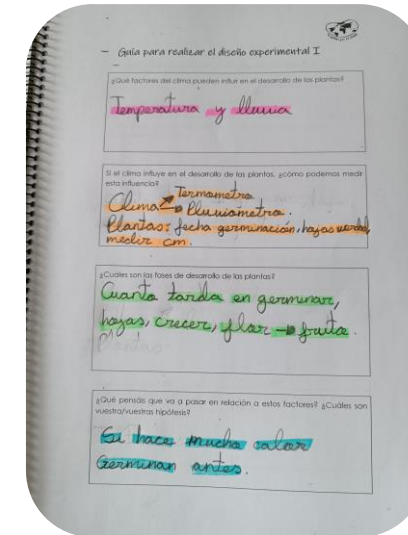 — Guía para realizar el diseño experimental I
¿Qué factores del clima pueden influir en el desarrollo de las plantas?
Temperatura y lluvia
Si el clima influye en el desarrollo de las plantas, ¿cómo podemos medir
esta influencia?
Termometro
Clima → Pluviometro.
Plantas: fecha germinación, hojas verdes,
medir cm.
¿Cuáles son las fases de desarrollo de las plantas?
Cuanto tarda en germinar,
hojas, crecer, flor → fruto.
¿Qué pensáis que va a pasar en relación a estos factores? ¿Cuáles son
vuestra/vuestras hipótesis?
Si hace mucho calor
Germinan antes.